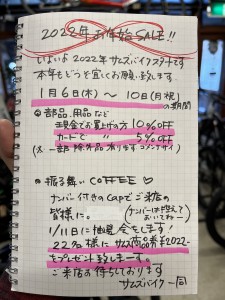 2022年お年始SALE!!
いよいよ2022年サムズバイクスタートです
本年もどうぞ宜しくお願い致します
1月6日(木)〜10日(月祝)
の期間
◎部品、用品など
現金でお買上げの方 10%OFF
カードで 〃 5%OFF
(※一部除外品ありますゴメンナサイ)
◎振る舞いCOFFEE♡
ナンバー付きのcapでご来店の
皆様に。(ナンバーは控えて
おいてねー)
1/11日に抽選会をします!
22名様にサムズ商品券¥2022-
をプレゼント致しまーす。
ご来店お待ちしております
サムズバイク一同